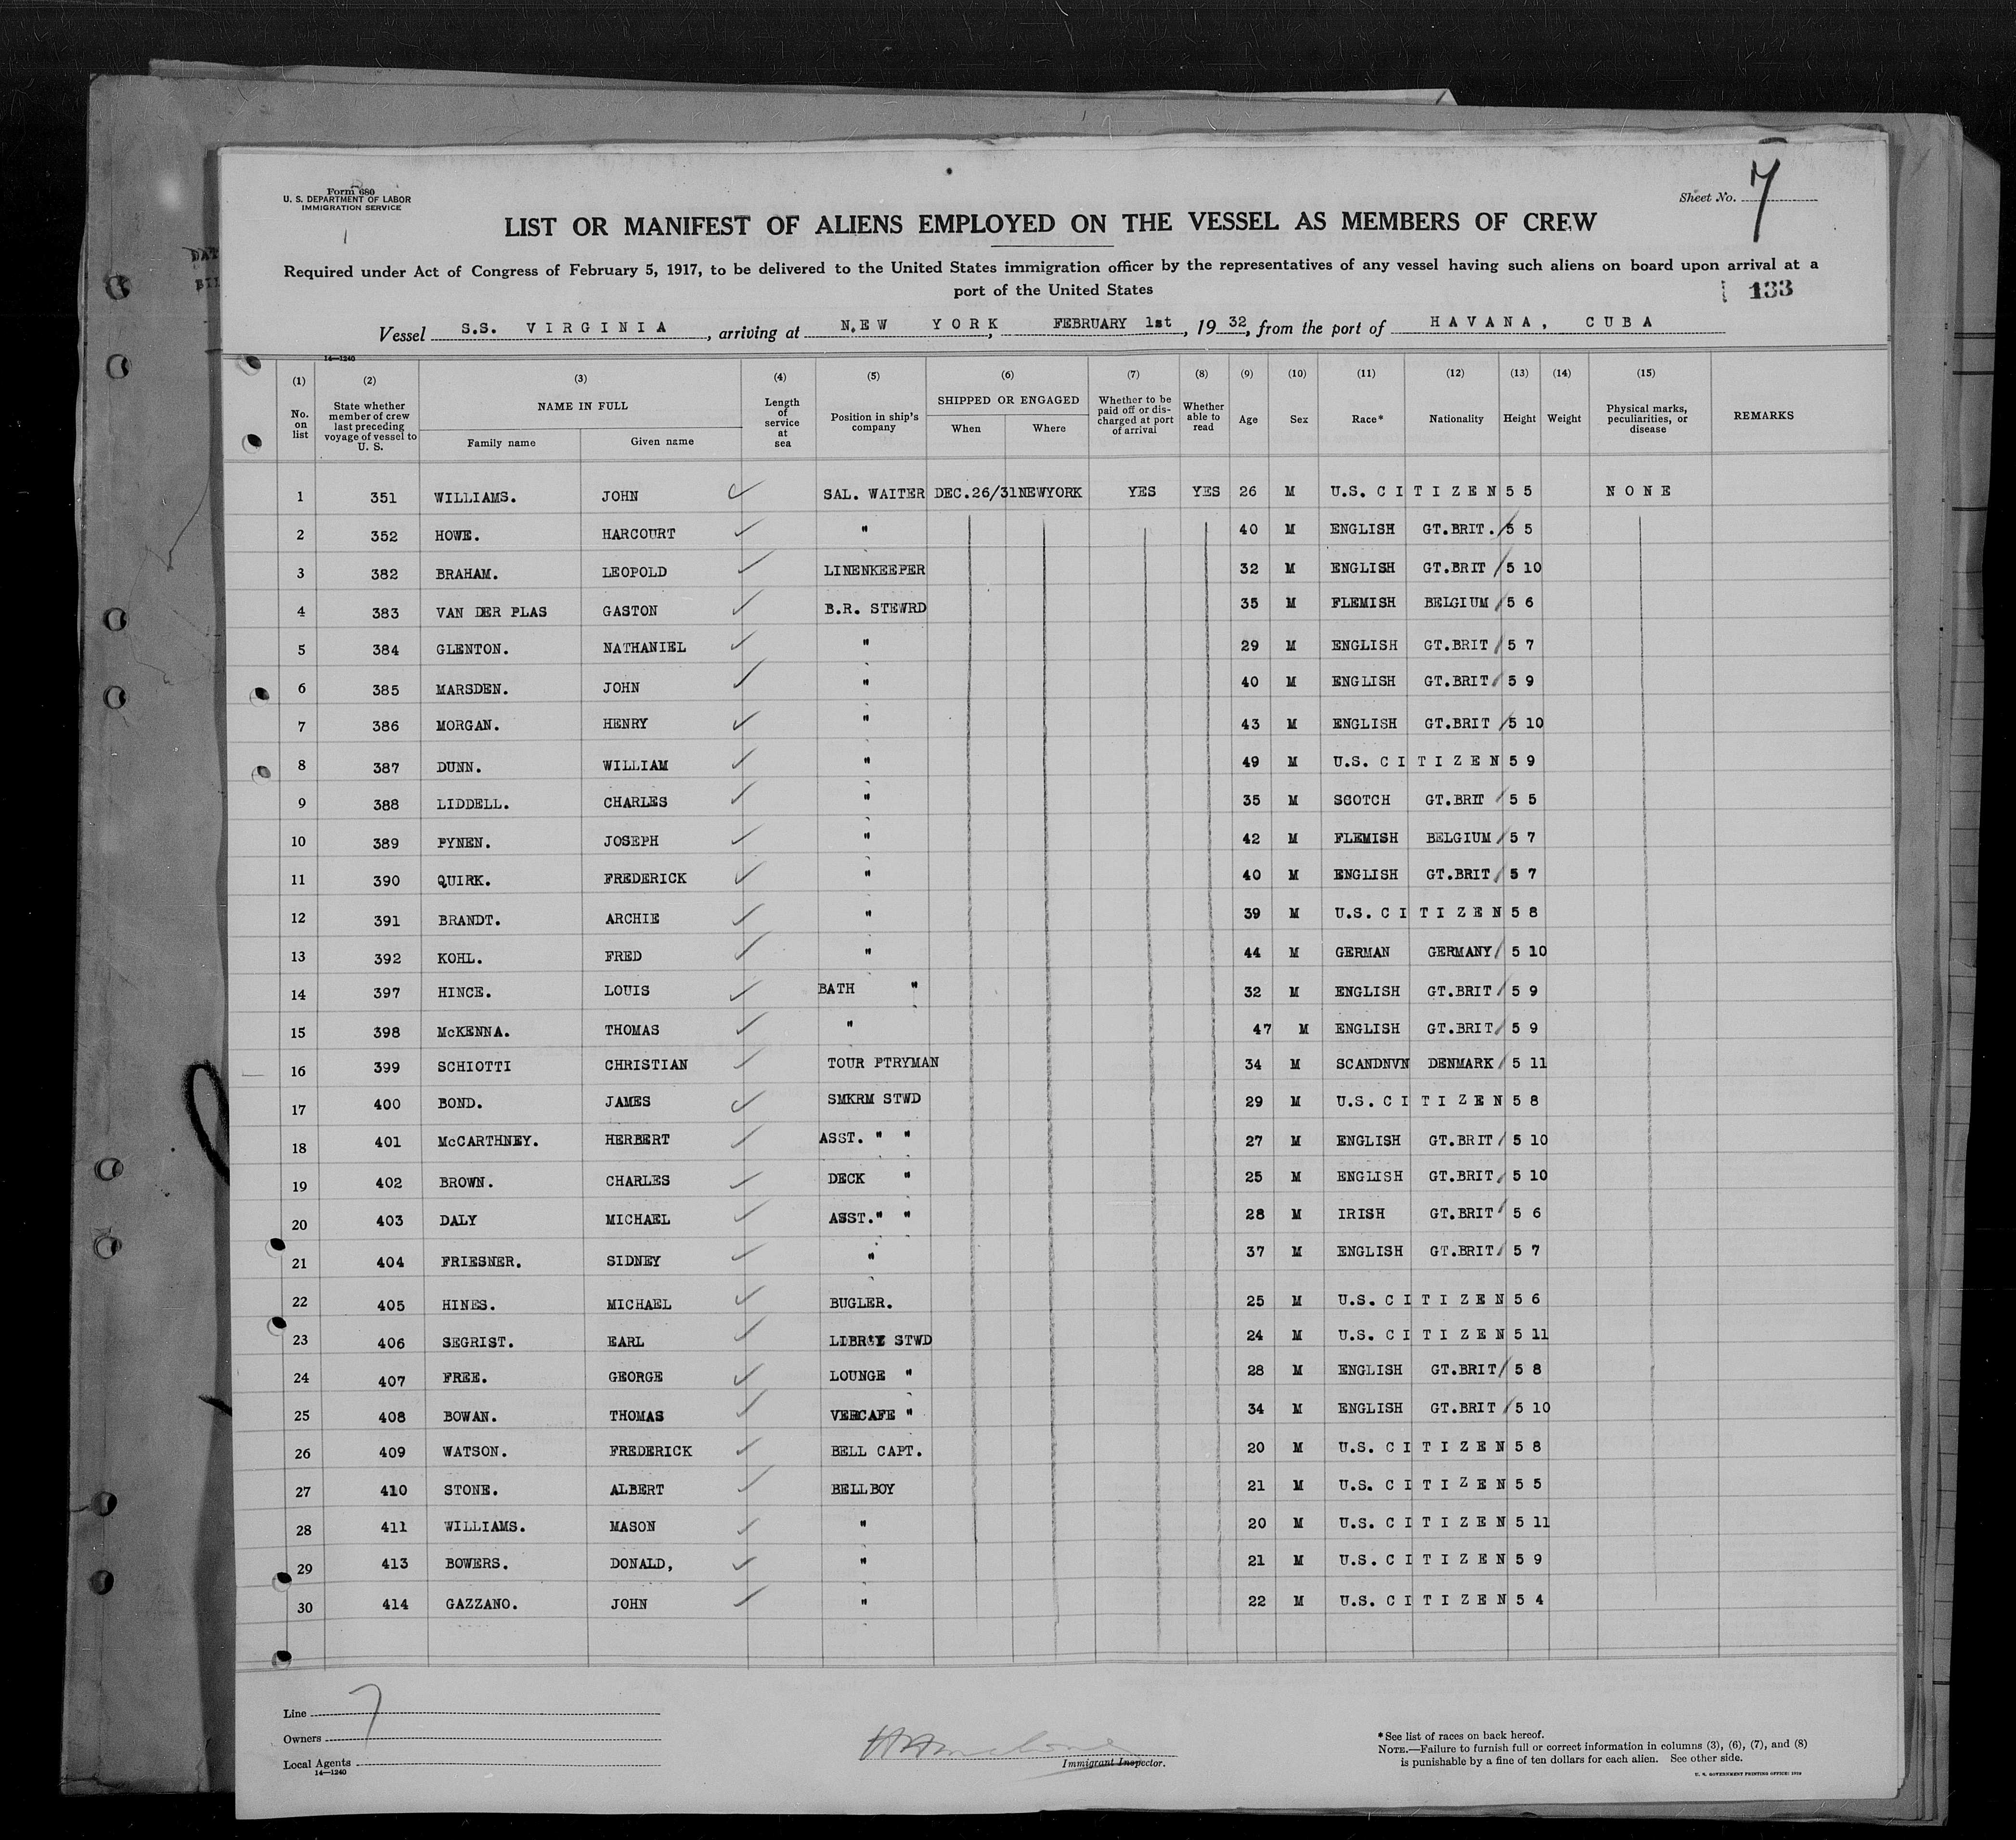 Form 680
U. S. DEPARTMENT OF LABOR
IMMIGRATION SERVICE
Sheet No. 7
LIST OR MANIFEST OF ALIENS EMPLOYED ON THE VESSEL AS MEMBERS OF CREW
Required under Act of Congress of February 5, 1917, to be delivered to the United States immigration officer by the representatives of any vessel having such aliens on board upon arrival at a
port of the United States
133
Vessel S.S. VIRGINIA, arriving at NEW YORK, FEBRUARY 1st, 1932, from the port of HAVANA, CUBA
14—1240
(1) (2) (3) (4) (5) (6) (7) (8) (9) (10) (11) (12) (13) (14) (15)
No. on list State whether member of crew last preceding voyage of vessel to U. S. NAME IN FULL Family name Given name Length of service at sea Position in ship's company SHIPPED OR ENGAGED When Where Whether to be paid off or discharged at port of arrival Whether able to read Age Sex Race* Nationality Height Weight Physical marks, peculiarities, or disease REMARKS
1 351 WILLIAMS. JOHN SAL. WAITER DEC.26/31 NEWYORK YES YES 26 M U.S. CITIZEN 5 5 NONE
2 352 HOWE. HARCOURT " 40 M ENGLISH GT.BRIT. 5 5
3 382 BRAHAM. LEOPOLD LINENKEEPER 32 M ENGLISH GT.BRIT 5 10
4 383 VAN DER PLAS GASTON B.R. STEWRD 35 M FLEMISH BELGIUM 5 6
5 384 GLENTON. NATHANIEL " 29 M ENGLISH GT.BRIT 5 7
6 385 MARSDEN. JOHN " 40 M ENGLISH GT.BRIT 5 9
7 386 MORGAN. HENRY " 43 M ENGLISH GT.BRIT 5 10
8 387 DUNN. WILLIAM " 49 M U.S. CITIZEN 5 9
9 388 LIDDELL. CHARLES " 35 M SCOTCH GT.BRIT 5 5
10 389 PYNEN. JOSEPH " 42 M FLEMISH BELGIUM 5 7
11 390 QUIRK. FREDERICK " 40 M ENGLISH GT.BRIT 5 7
12 391 BRANDT. ARCHIE " 39 M U.S. CITIZEN 5 8
13 392 KOHL. FRED " 44 M GERMAN GERMANY 5 10
14 397 HINCE. LOUIS BATH " 32 M ENGLISH GT.BRIT 5 9
15 398 McKENNA. THOMAS " 47 M ENGLISH GT.BRIT 5 9
16 399 SCHIOTTI CHRISTIAN TOUR PTRYMAN 34 M SCANDNVN DENMARK 5 11
17 400 BOND. JAMES SMKRM STWD 29 M U.S. CITIZEN 5 8
18 401 McCARTHNEY. HERBERT ASST. " " 27 M ENGLISH GT.BRIT 5 10
19 402 BROWN. CHARLES DECK " 25 M ENGLISH GT.BRIT 5 10
20 403 DALY MICHAEL ASST." " 28 M IRISH GT.BRIT 5 6
21 404 FRIESNER. SIDNEY " 37 M ENGLISH GT.BRIT 5 7
22 405 HINES. MICHAEL BUGLER. 25 M U.S. CITIZEN 5 6
23 406 SEGRIST. EARL STWD 24 M U.S. CITIZEN 5 11
24 407 FREE. GEORGE LOUNGE " 28 M ENGLISH GT.BRIT 5 8
25 408 BOWAN. THOMAS VERCAFE " 34 M ENGLISH GT.BRIT 5 10
26 409 WATSON. FREDERICK BELL CAPT. 20 M U.S. CITIZEN 5 8
27 410 STONE. ALBERT BELLBOY 21 M U.S. CITIZEN 5 5
28 411 WILLIAMS. MASON " 20 M U.S. CITIZEN 5 11
29 413 BOWERS. DONALD, " 21 M U.S. CITIZEN 5 9
30 414 GAZZANO. JOHN " 22 M U.S. CITIZEN 5 4
Line
7
Owners
Local Agents
14—1240
Immigrant Inspector.
*See list of races on back hereof.
NOTE.—Failure to furnish full or correct information in columns (3), (6), (7), and (8)
is punishable by a fine of ten dollars for each alien. See other side.
U. S. GOVERNMENT PRINTING OFFICE: